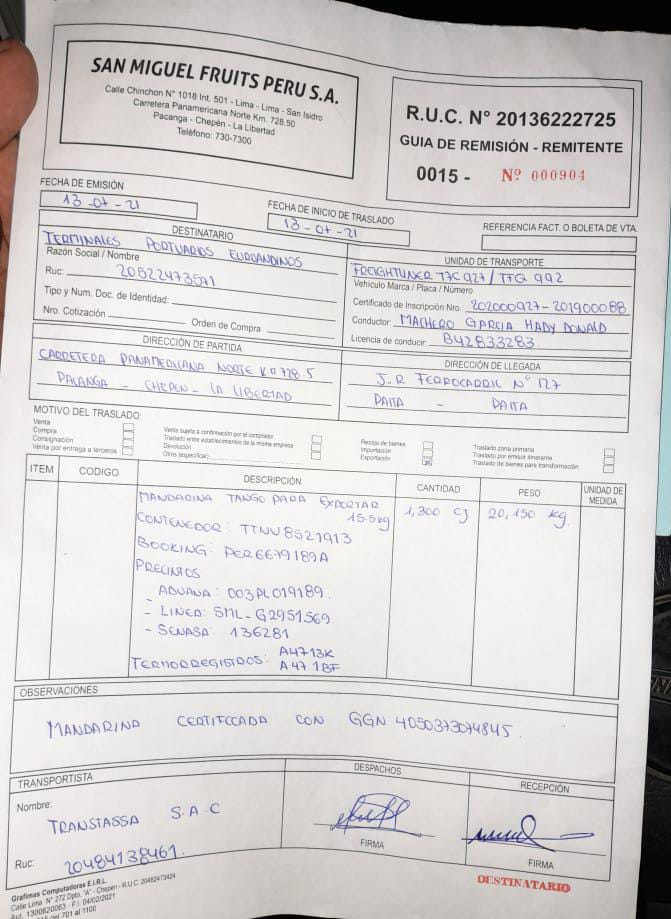 SAN MIGUEL FRUITS PERU S.A.
Calle Chinchon N° 1018 Int. 501 - Lima - Lima - San Isidro
Carretera Panamericana Norte Km. 728.50
Pacanga - Chepén - La Libertad
Teléfono: 730-7300
R.U.C. N° 20136222725
GUIA DE REMISIÓN - REMITENTE
0015 - Nº 000904
FECHA DE EMISIÓN
13-07-21
FECHA DE INICIO DE TRASLADO
13-07-21
REFERENCIA FACT. O BOLETA DE VTA.
DESTINATARIO
TERMINALES PORTUARIOS EUROANDINOS
Razón Social / Nombre
Ruc: 20522473571
Tipo y Num. Doc. de Identidad:
Nro. Cotización: Orden de Compra:
UNIDAD DE TRANSPORTE
FREIGHTLINER T7C927 / TFQ 992
Vehículo Marca / Placa / Número
Certificado de Inscripción Nro.: 202000927-201900088
Conductor: MACHERO GARCIA HADY DONALD
Licencia de conducir: B42833283
DIRECCIÓN DE PARTIDA
CARRETERA PANAMERICANA NORTE KM 728.5
PACANGA - CHEPEN - LA LIBERTAD
DIRECCIÓN DE LLEGADA
J.R FERROCARRIL N° 127
PAITA - PAITA
MOTIVO DEL TRASLADO:
Venta
Compra
Consignación
Venta por entrega a terceros
Venta sujeta a confirmación por el comprador
Traslado entre establecimientos de la misma empresa
Devolución
Otros (especificar)
Recojo de bienes
Importación
Exportación
Traslado zona primaria
Traslado por emisor itinerante
Traslado de bienes para transformación
ITEM CODIGO DESCRIPCIÓN CANTIDAD PESO UNIDAD DE MEDIDA
MANDARINA TANGO PARA EXPORTAR 1,300 CJ 20,150 kg
15.5kg
CONTENEDOR: TTNU8521913
BOOKING: PER6679189A
PRECINTOS
- ADUANA: 003PL019189
- LINEA: SML-G2951569
- SENASA: 136281
TERMORREGISTROS: A4713K
A471BF
OBSERVACIONES
MANDARINA CERTIFICADA CON GGN 4050373074845.
TRANSPORTISTA
Nombre:
TRANSTASSA S.A.C
Ruc: 20484138461.
DESPACHOS
FIRMA
RECEPCIÓN
FIRMA
DESTINATARIO
Grafimas Computadoras E.I.R.L.
Calle Lima N° 272 Dpto. "A" - Chepén - R.U.C. 20482473424
Aut. 1300620063 - F.I. 04/02/2021
del 701 al 1100